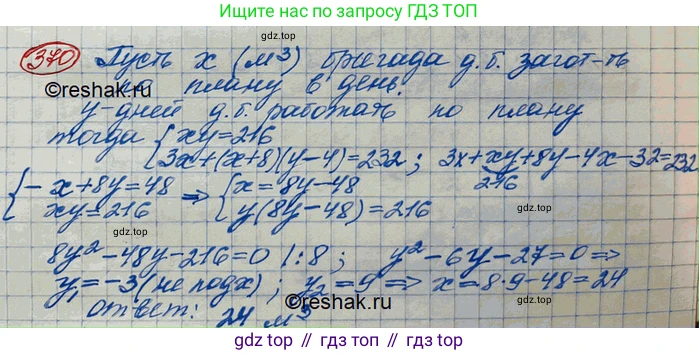 Ищите нас по запросу ГДЗ ТОП
gdz.top
370 Пусть x (м³) бригада д.б. загот-ть
по плану в день.
©reshak.ru
y-дней д.б. работать по плану
тогда { xy=216
3x+(x+8)(y-4)=232; 3x+xy+8y-4x-32=232
216
{ -x+8y=48 ⇒ { x=8y-48
xy=216 y(8y-48)=216
8y²-48y-216=0 |:8; y²-6y-27=0 ⇒
y₁=-3 (не подх); y₂=9 ⇒ x=8·9-48=24
Ответ: 24 м³
©reshak.ru
gdz.top
gdz top // гдз топ // gdz.top